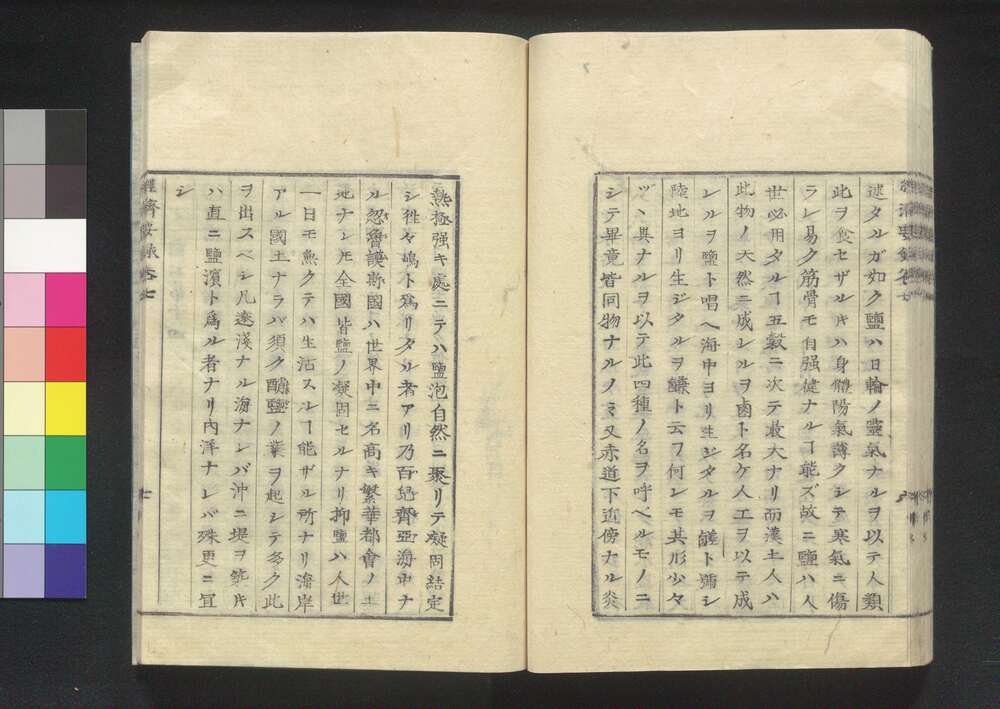 述タルガ如ク鹽ハ日輪ノ靈氣ナルヲ以テ人類
此ヲ食セザルキハ身體陽氣薄クシテ寒氣ニ傷
ラレ易ク筋骨モ自强健ナルヿ能ズ故ニ鹽ハ人
世必用タルヿ五穀ニ次テ最大ナリ而漢土人ハ
此物ノ天然ニ成レルヲ鹵ト名ケ人工ヲ以テ成
レルヲ鹽ト唱ヘ海中ヨリ生ジタルヲ ト彌シ
陸地ヨリ生ジタルヲ鹻ト云フ何レモ其形少々
ヅヽ異ナルヲ以テ此四種ノ名ヲ呼ベルモノニ
シテ畢竟皆同物ナルノミ又赤道下近傍ナル炎
熱極强キ處ニテハ鹽泡自然ニ聚リテ凝固結定
シ徃々嶋ト爲リタル者アリ乃百 齊亞海中ナ
ル忽魯謨斯國ハ世界中ニ名高キ繁華都會ノ土
地ナレモ全國皆鹽ノ凝固セルナリ抑鹽ハ人世
一日モ無クテハ生活スルヿ能ザル所ナリ海岸
アル國土ナラバ須ク 鹽ノ業ヲ起シテ多ク此
ヲ出スベシ凡遠淺ナル海ナレバ沖ニ堤ヲ築キ
ハ直ニ鹽濱ト爲ル者ナリ內洋ナレバ殊更ニ宜
シ
經濟要錄卷七
七